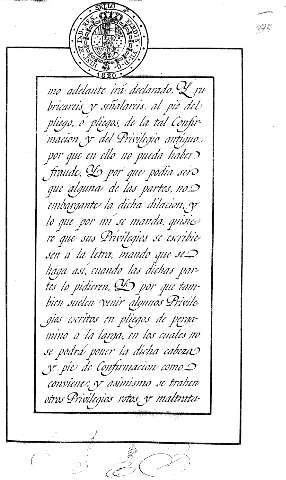 1820
mo adelante irá declarado. Y su
bricareis y señalareis al pie del
pliego, ó pliegos, de la tal Confir-
macion y del Privilegio antiguo,
por que en ello no pueda haber
fraude. Y por que podia ser
que alguna de las partes, no
embargante la dicha dilacion, y
lo que por mi se manda, quisie-
re que sus Privilegios se escribie-
sen á la letra, mando que se
haga así, cuando las dichas par-
tes lo pidieren. Y por que tam-
bien suelen venir algunos Privile-
gios escritos en pliegos de perga-
mino á la larga, en los cuales no
se podrá poner la dicha cabeza
y pie de Confirmacion como
conviene, y asimismo se trahen
otros Privilegios rotos y maltrata-